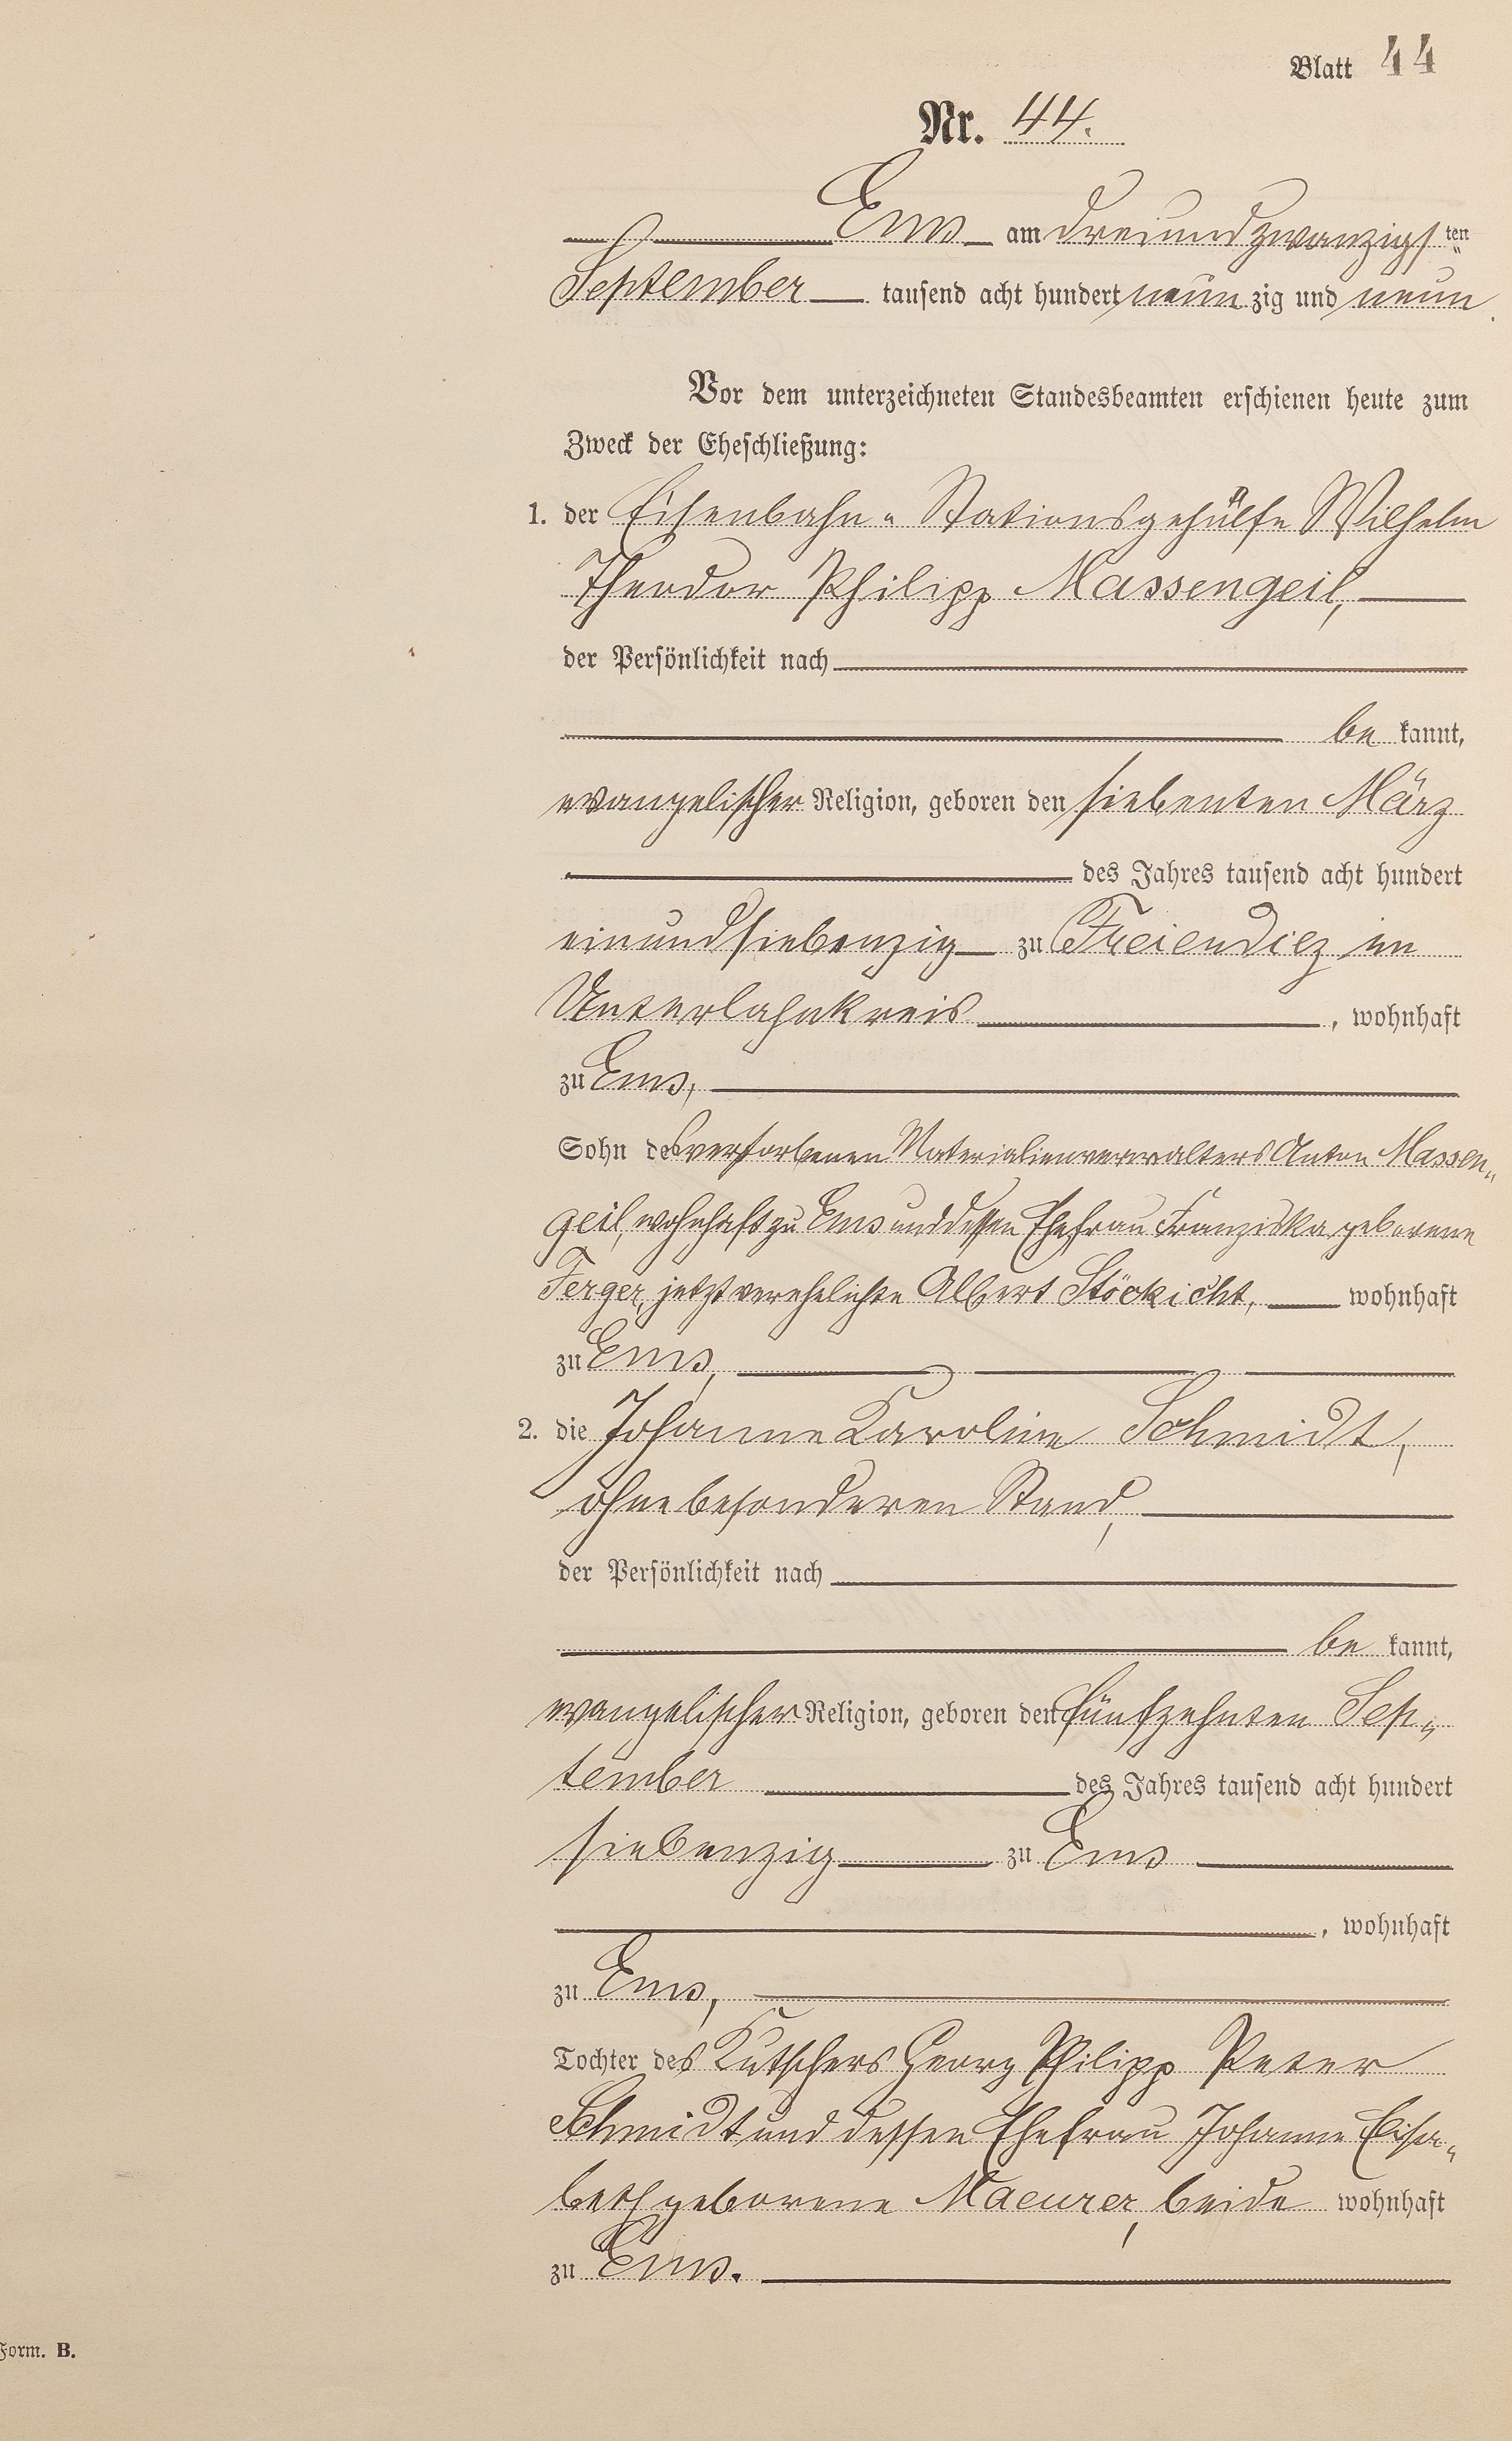 Blatt 44
Nr. 44.
Ems am dreiundzwanzigsten
September tausend acht hundert neunzig und neun
Vor dem unterzeichneten Standesbeamten erschienen heute zum
Zweck der Eheschließung:
1. der Eisenbahn-Stationsgehülfe Wilhelm
Theodor Philipp Massengeil,
der Persönlichkeit nach
bekannt,
evangelischer Religion, geboren den siebenten März
des Jahres tausend acht hundert
einundsiebenzig zu Freiendiez im
Unterlahnkreis, wohnhaft
zu Ems,
Sohn des verstorbenen Materialienverwalters Anton Massen-
geil, wohnhaft zu Ems und dessen Ehefrau Franziska geborene
Ferger, jetzt verehelichte Albert Stöckicht, wohnhaft
zu Ems,
2. die Johanne Karoline Schmidt,
ohne besonderen Stand,
der Persönlichkeit nach
bekannt,
evangelischer Religion, geboren den fünfzehnten Sep-
tember des Jahres tausend acht hundert
siebenzig zu Ems
, wohnhaft
zu Ems,
Tochter des Kutschers Georg Philipp Peter
Schmidt und dessen Ehefrau Johanne Elisa-
beth geborene Maeurer, beide wohnhaft
zu Ems.
Form. B.